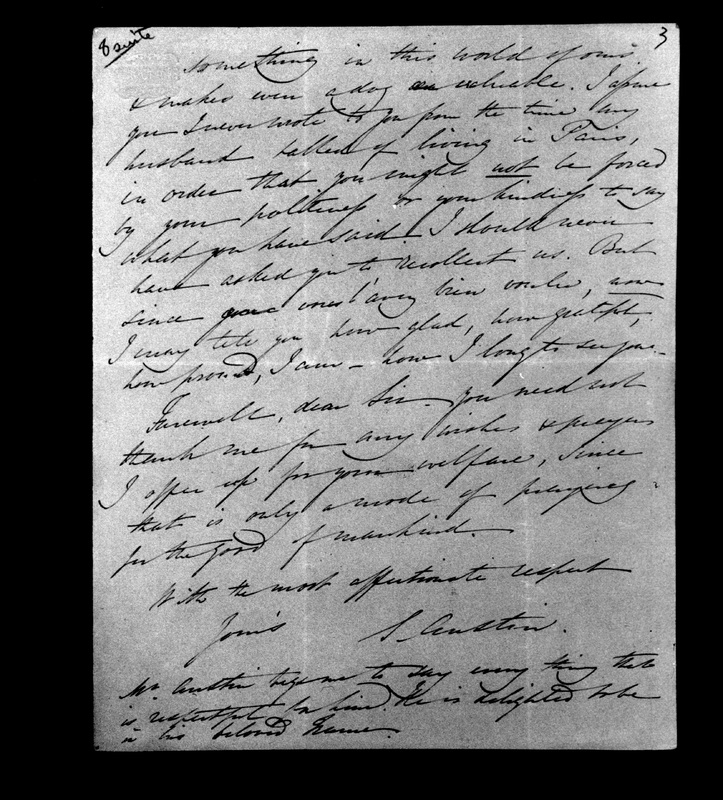 8 suite
3
something in this world of ours.
& makes even a dog valuable. I assure
you I never wrote to you from the time my
husband talked of living in Paris,
in order that you might not be forced
by your politeness or your kindness to say
what you have said. I should never
have asked you to recollect us. But
since vous l'avez bien voulu, now
I may tell you how glad, how grateful,
how proud, I am – how I long to see you –
Farewell, dear Sir – you need not
thank me for any wishes & prayers
I offer up for your welfare, since
that is only a mode of praying
for the good of mankind.
With the most affectionate respect
Yours S. Austin.
Mr Austin begs me to say every thing that
is respectful for him. He is delighted to be
in his beloved France.